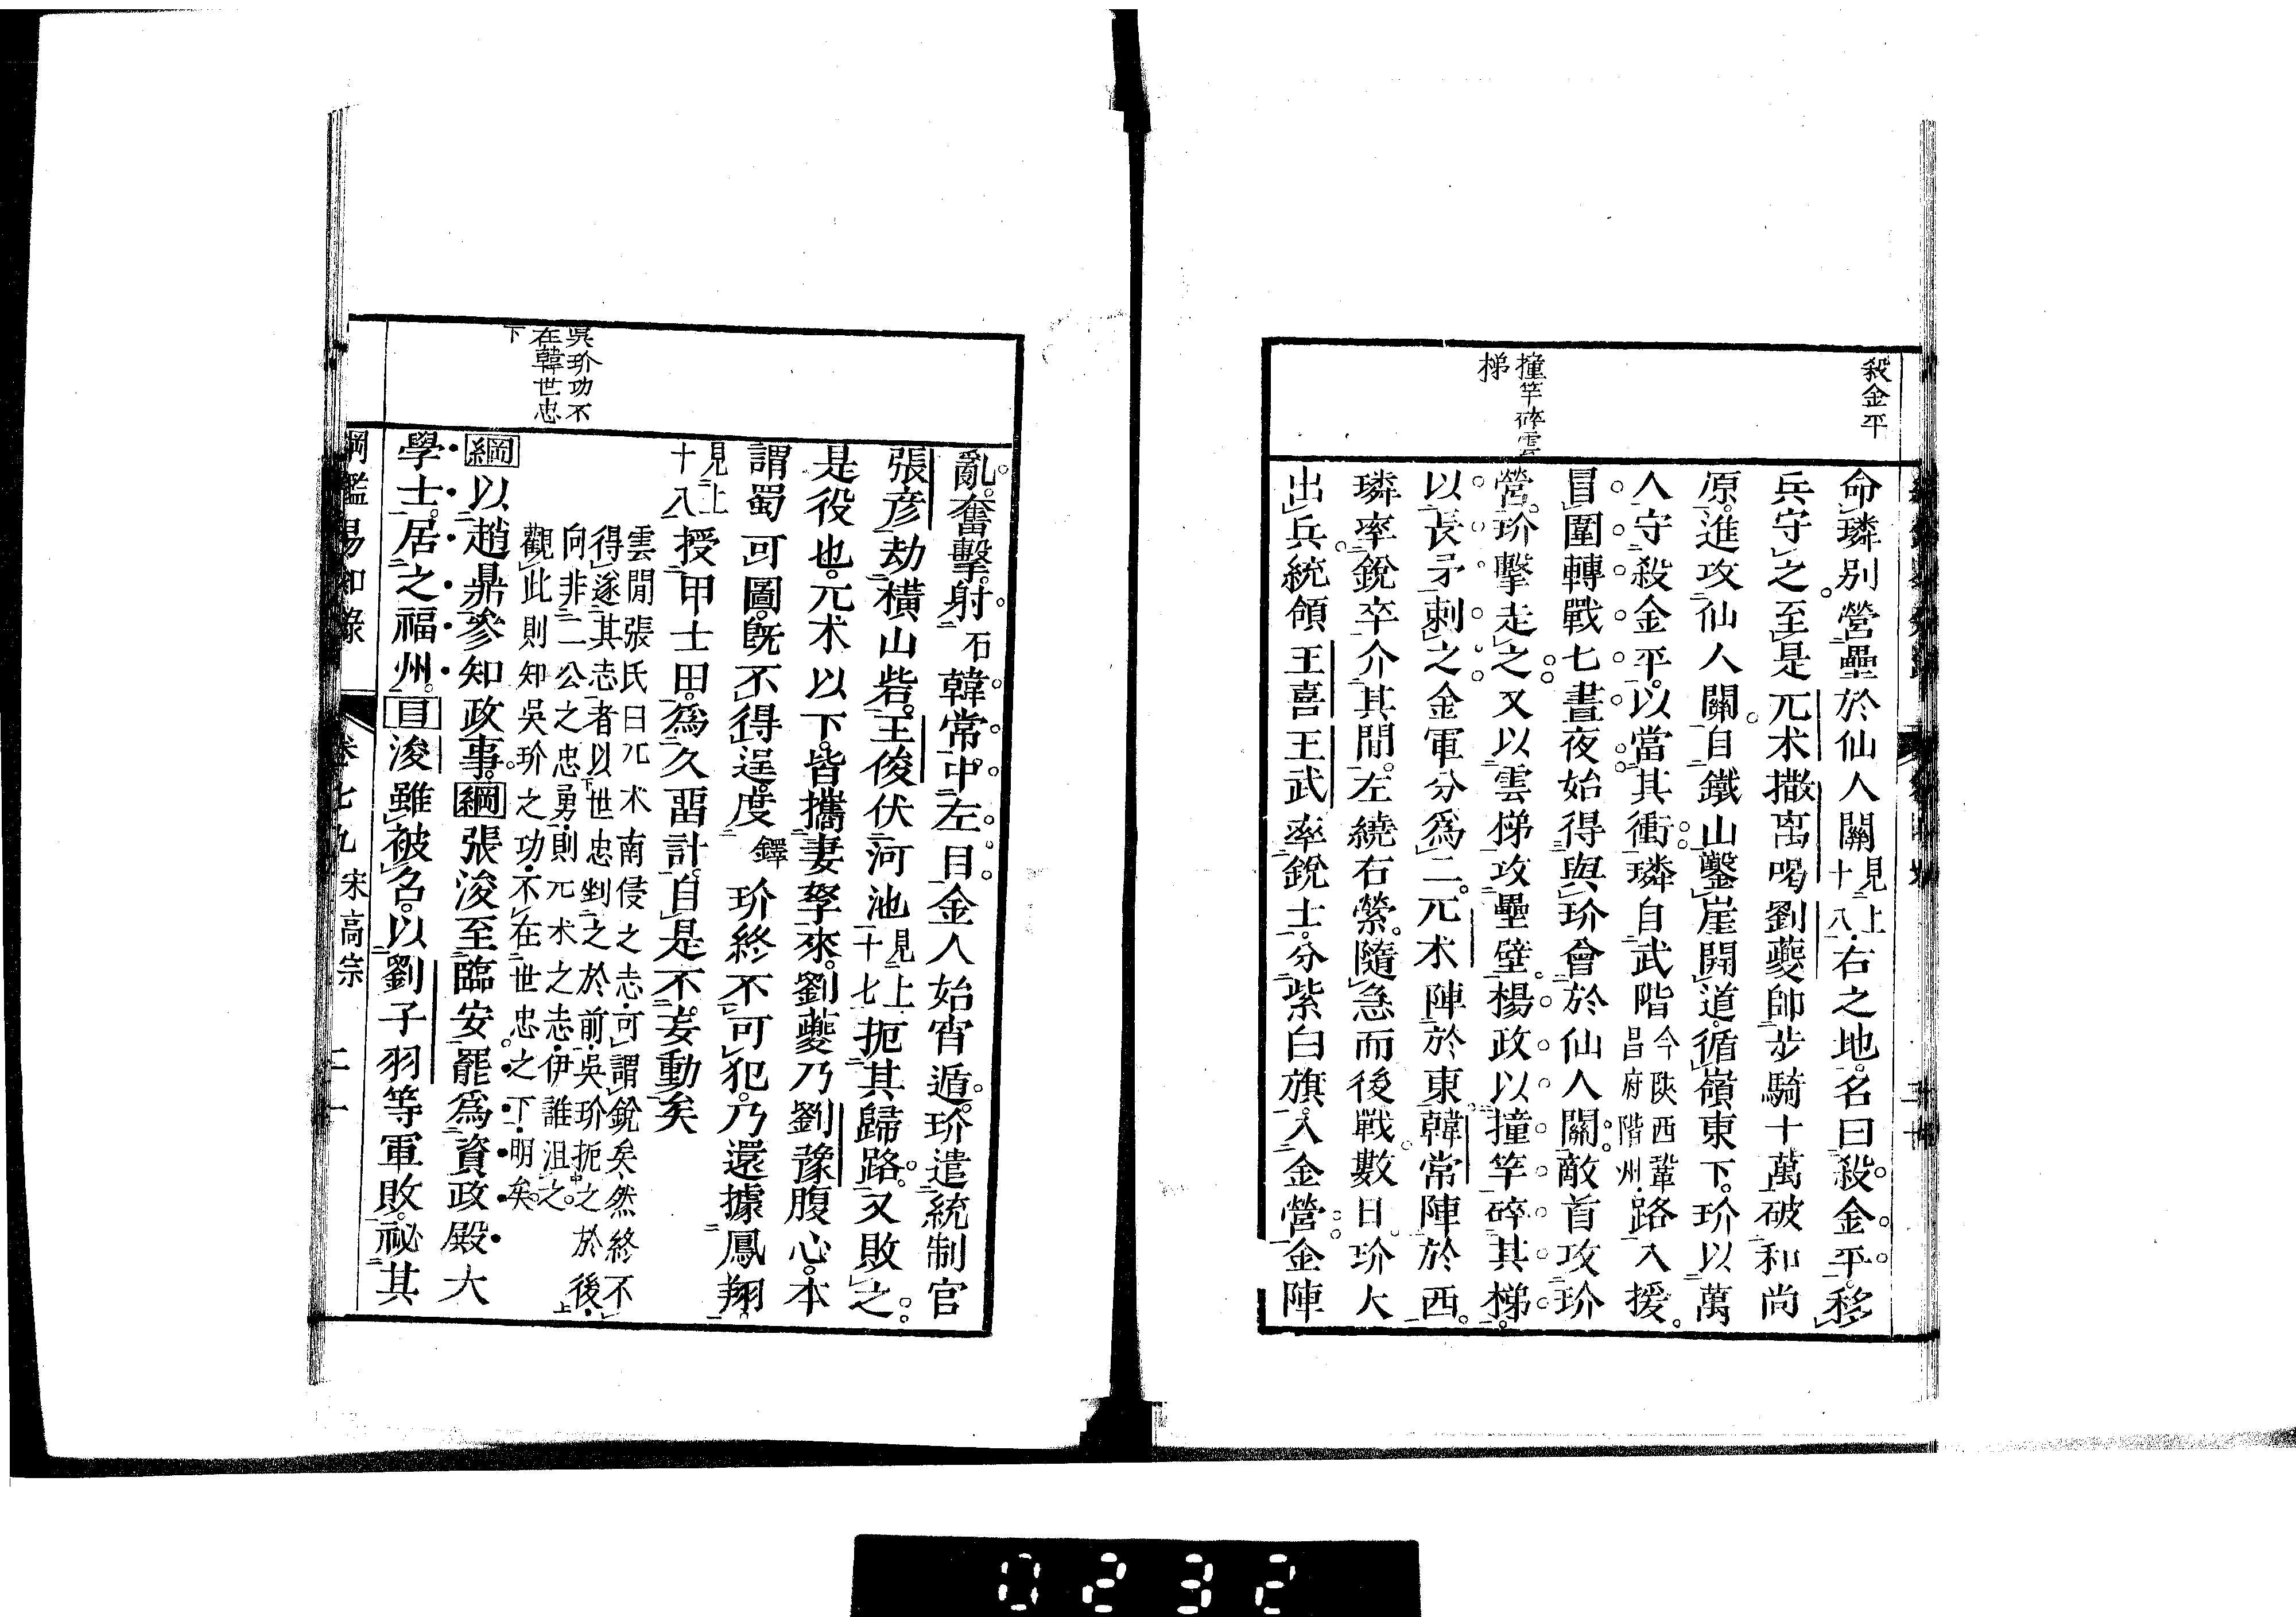 殺金平
撞竿碎雲
梯
命璘別營壘於仙人關見上十八右之地名曰殺金平移
兵守之至是兀朮撒离喝劉夔帥步騎十萬破和尚
原進攻仙人關自鐵山鑿崖開道循嶺東下玠以萬
人守殺金平以當其衝璘自武階今陝西鞏昌府階州路入援
冒圍轉戰七晝夜始得與玠會於仙人關敵首攻玠
營玠擊走之又以雲梯攻壘壁楊政以撞竿碎其梯
以長矛刺之金軍分為二兀朮陣於東韓常陣於西
璘率銳卒介其閒左繞右縈隨急而後戰數日玠大
出兵統領王喜王武率銳士分紫白旗入金營金陣
吳玠功不
在韓世忠
下
亂奮擊射石韓常中左目金人始宵遁玠遣統制官
張彦劫橫山砦王俊伏河池見上十七扼其歸路又敗之
是役也兀朮以下皆攜妻孥來劉夔乃劉豫腹心本
謂蜀可圖旣不得逞度鐸玠終不可犯乃還據鳳翔
見上十八授甲士田為久畱計自是不妄動矣
雲閒張氏曰兀朮南侵之志可謂銳矣然終不
得遂其志者以世忠剉之於前吳玠扼之於後
向非二公之忠勇則兀朮之志伊誰沮之
觀此則知吳玠之功不在世忠之下明矣
綱以趙鼎參知政事綱張浚至臨安罷為資政殿大
學士居之福州目浚雖被召以劉子羽等軍敗祕其
綱鑑易知錄 卷七九 宋高宗 二十一
0232